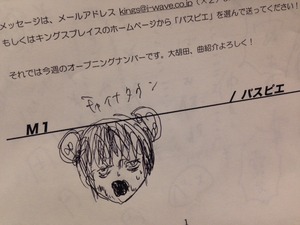 メッセージは、メールアドレス kings@i-wave.co.jp
もしくはキングスプレイスのホームページから「パスピエ」を選んで送ってください！
それでは今週のオープニングナンバーです。大胡田、曲紹介よろしく！
チャイナタウン
M1 / パスピエ
1